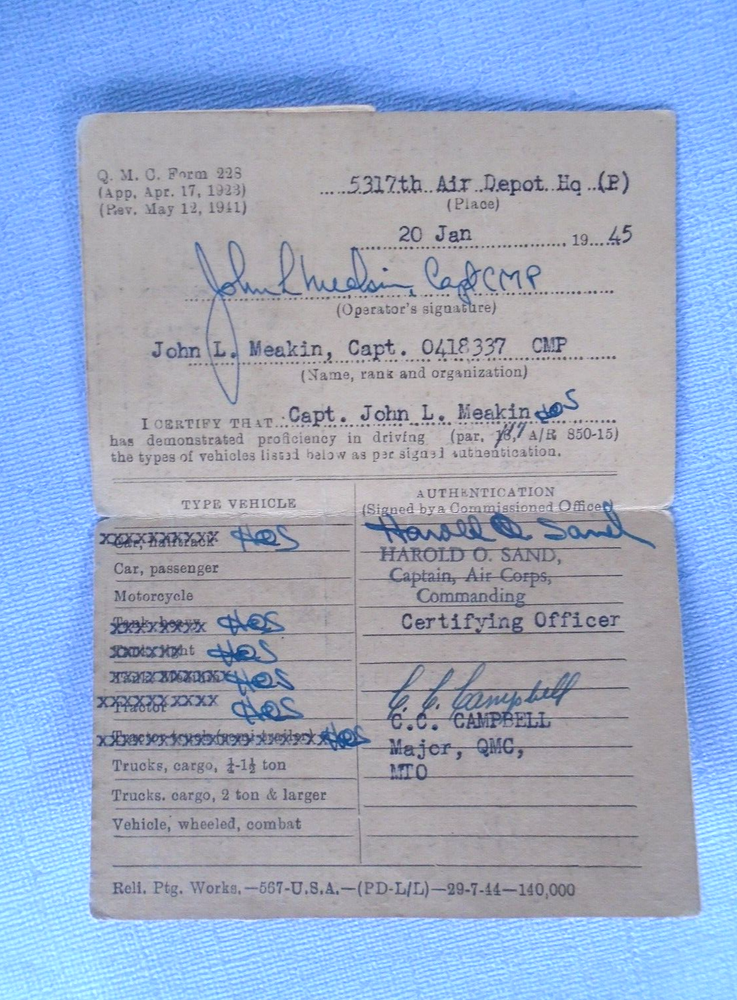 Q. M. C. Form 228
(App. Apr. 17, 1923)
(Rev. May 12, 1941)
5317th Air Depot Hq (P)
(Place)
20 Jan 1945
John L Meakin, Capt CMP
(Operator's signature)
John L. Meakin, Capt. 0418337 CMP
(Name, rank and organization)
I CERTIFY THAT Capt. John L. Meakin HOS
has demonstrated proficiency in driving (par. A/R 850-15)
the types of vehicles listed below as per signed authentication.
TYPE VEHICLE
AUTHENTICATION
(Signed by a Commissioned Officer)
Car, halftrack HOS
Harold O. Sand
HAROLD O. SAND,
Car, passenger
Captain, Air Corps,
Motorcycle
Commanding
Tank, heavy HOS
Certifying Officer
HOS
HOS
C. C. Campbell
Tractor HOS
C.C. CAMPBELL
Tractor-truck (semi-trailer) HOS
Major, QMC,
Trucks, cargo, ½-1½ ton
MTO
Trucks. cargo, 2 ton & larger
Vehicle, wheeled, combat
Reli. Ptg. Works.—567-U.S.A.—(PD-L/L)—29-7-44—140,000